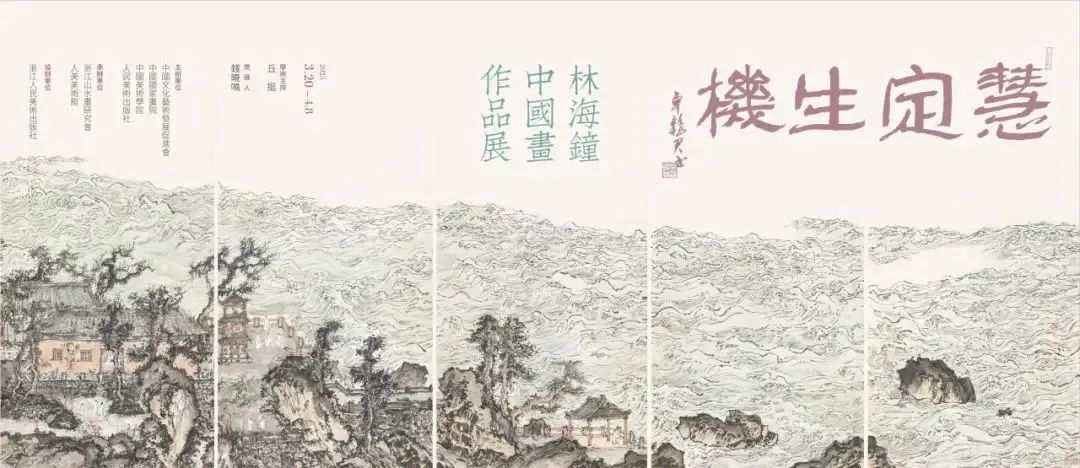 慧定生機
卓鶴君书
林海鐘
中國畫
作品展
2025
3.20—4.8
學術主持
丘挺
策展人
錢曉鳴
主辦單位
中國文化藝術發展促進會
中國國家畫院
中國美術學院
人民美術出版社
承辦單位
浙江山水畫研究會
人美美術館
協辦單位
浙江人民美術出版社